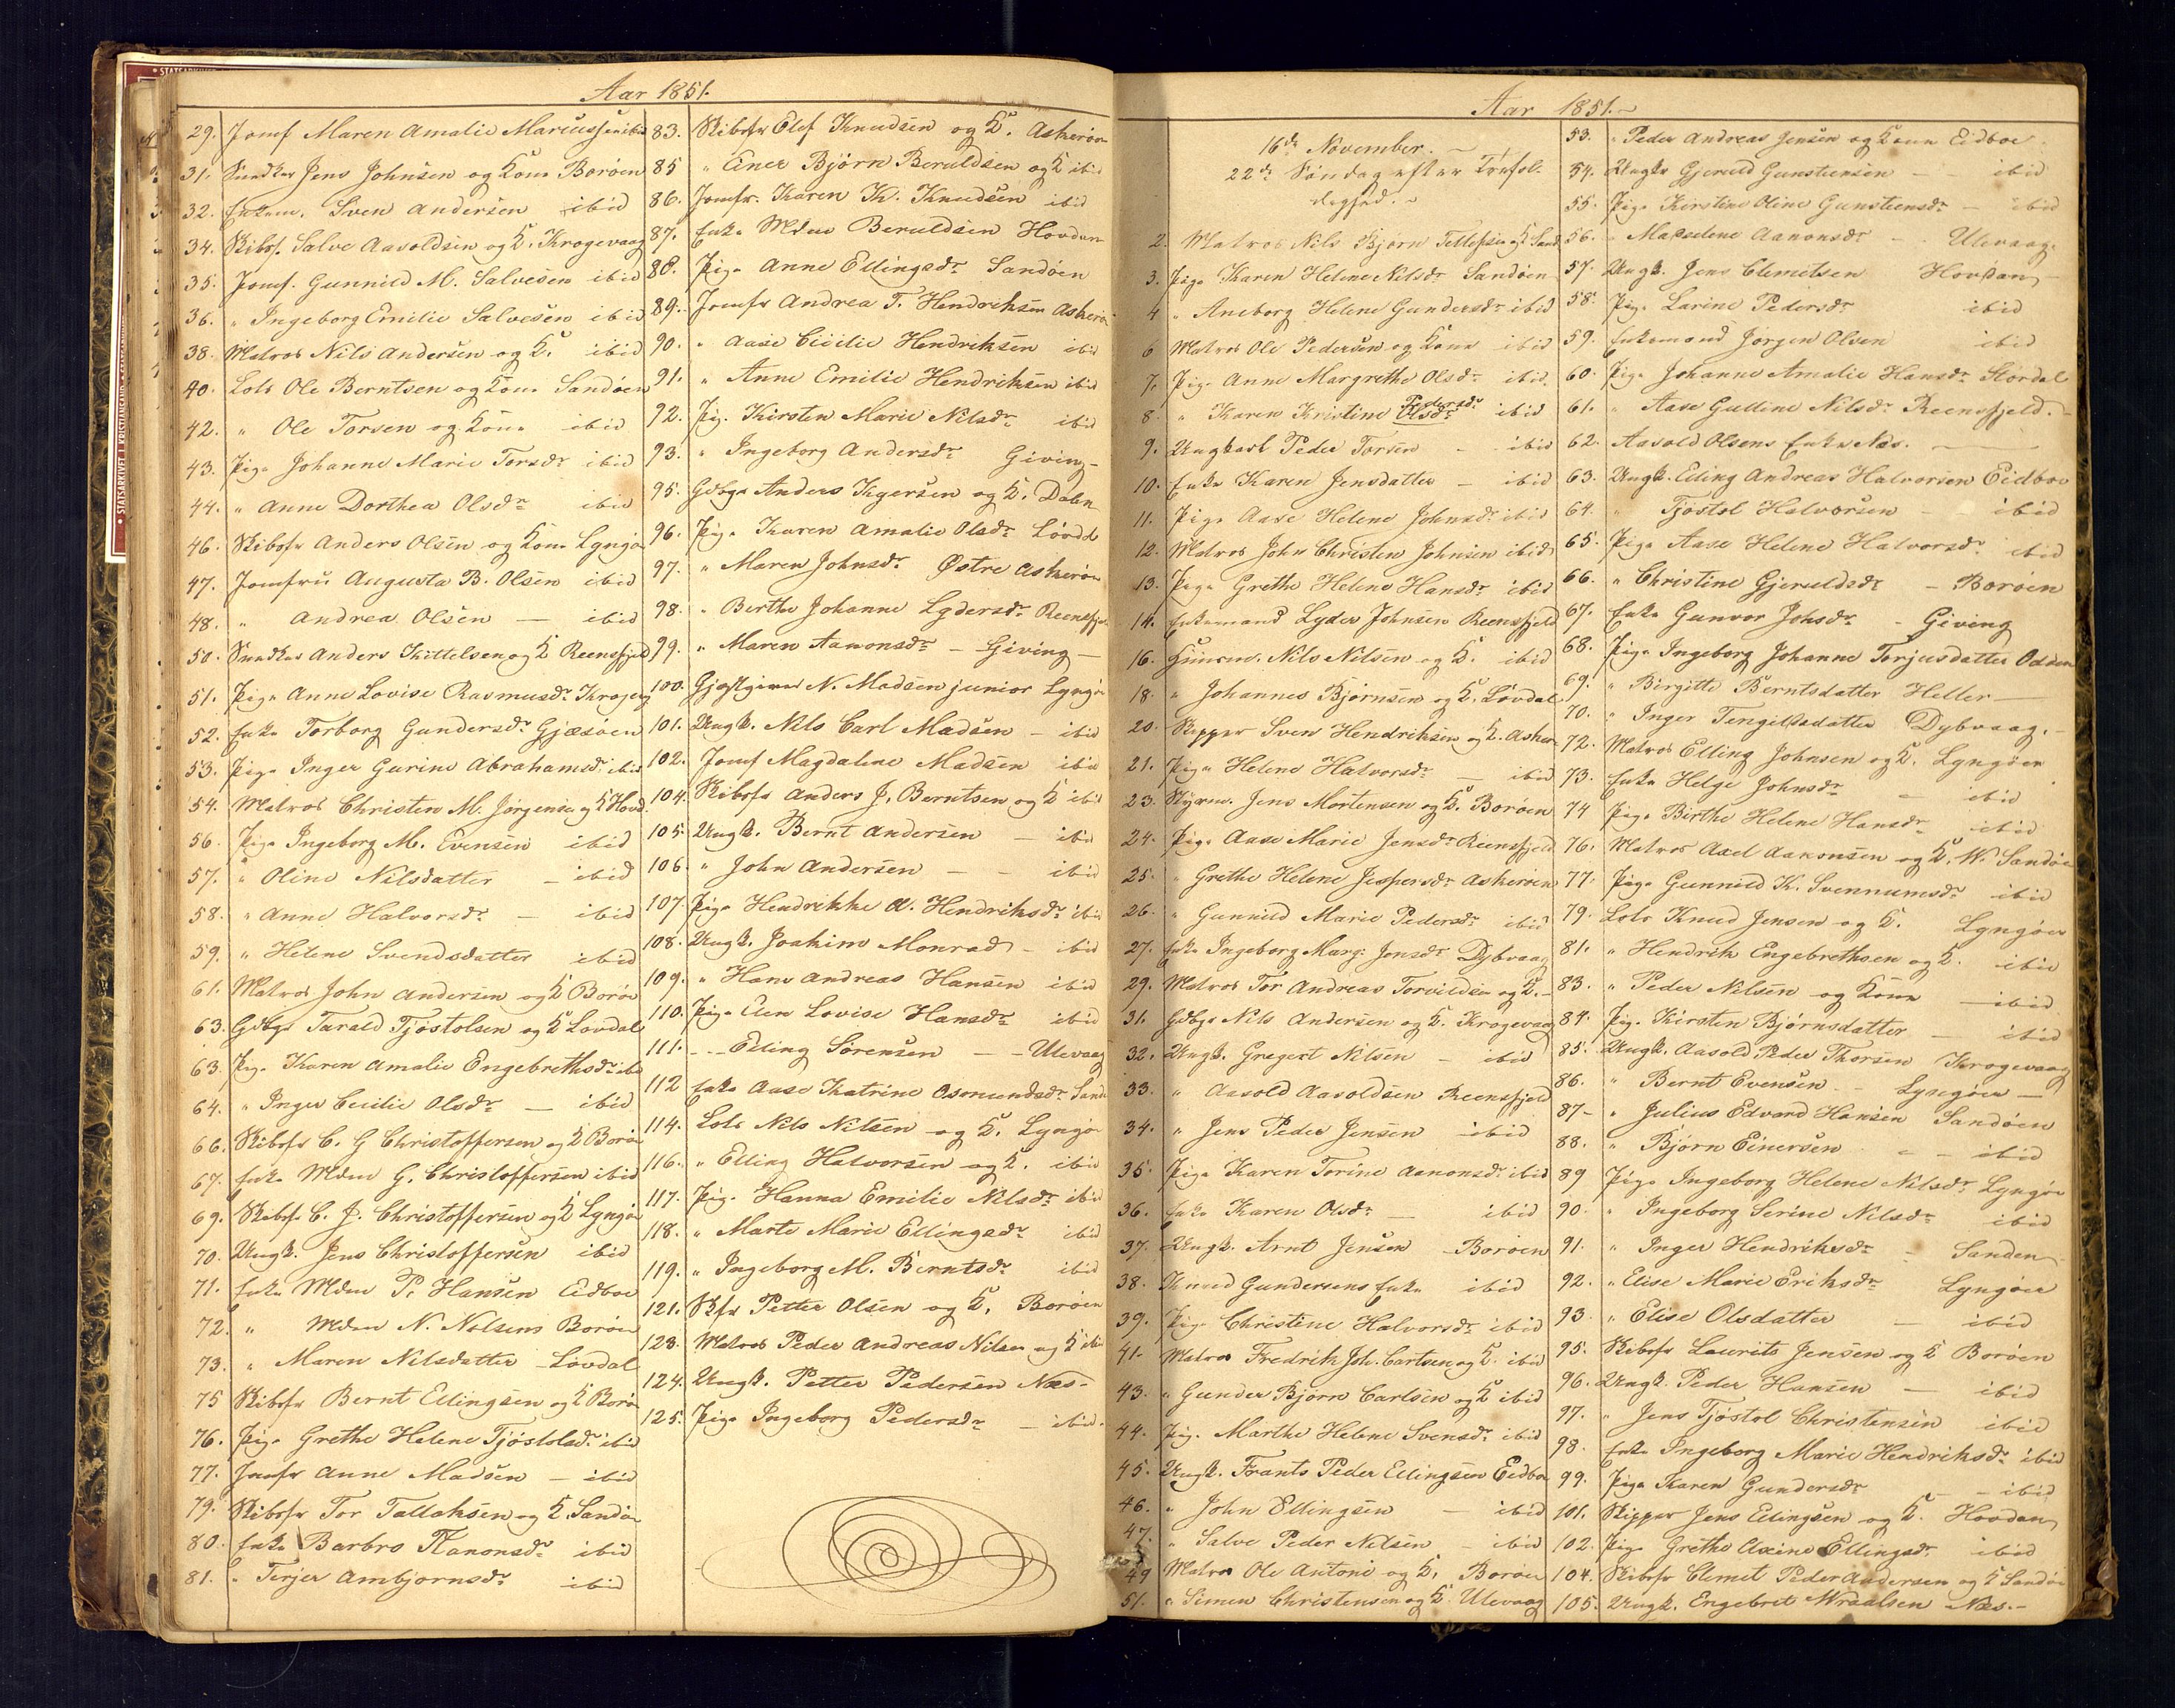 Aar 1851.
29. Jomf Maren Amalie Mariussen ibid
31. Jens Johnsen og Kone Borøen
32. Enkem. Sven Andersen ibid
34. Skibsf. Salve Aasoldsen og K. Krogevaag
35. Jomf. Gunnild M. Salvesen ibid
36. " Ingeborg Emilie Salvesen ibid
38. Matros Nils Andersen og K. ibid
40. Lods Ole Berntsen og Kone Sandøen
42. " Ole Torsen og Kone ibid
43. Pige Johanne Marie Torsdr ibid
44. " Anne Dorthea Olsdr ibid
46. Skibsfr Anders Olsen og Kone Lyngør
47. Jomfru Augusta B. Olsen ibid
48. " Andrea Olsen — ibid
50. Anders Kittelsen og K Reensfjeld
51. Pige Anne Lovise Rasmusdr Krogevg
52. Enke Torborg Gundersdr Gjæsøen
53. Pige Inger Gurine Abrahamsdr ibid
54. Matros Christen M. Jørgensen og K Hovd.
56. Pige Ingeborg M. Evensen ibid
57. " Oline Nilsdatter — ibid
58. " Anne Halvorsdr — ibid
59. " Helene Svendsdatter ibid
61. Matros John Andersen og K Borøe
63. Gdbgr Tarald Tjøstolsen og K Løvdal
63. Pig. Karen Amalie Engebrethsdr ibd
64. " Inger Cecilie Olsdr — ibid
66. Skibsfr C. G Christoffersen og K Borø
67. Enke Mdm G. Christoffersen ibid
69. Skibsf. C. J. Christoffersen og K Lyngø
70. Ungk. Jens Christoffersen ibid
71. Enke Mdm P. Hansen Eidboe
72. " Mdm N. Nilsens Borøen
73. " Maren Nilsdatter Løvdal
75 Skibsfr Bernt Ellingsen og K Borø
76. Pige Grethe Helene Tjøstolsdr ibid
77. Jomfr Anne Madsen — ibid
79. Skibsfr Tor Tallaksen og K. Sandø
80. Enke Barbro Aanonsdr ibid
81. " Terjer Ambjørnsdr ibid
83. Skibsfr Elef Knudsen og K. Askerøen
85 " Ener Bjørn Beruldsen og K ibid
86. Jomfr. Karen K. Knudsen ibid
87. Enke Mdm Beruldsen Hovdan
88. Pige Anne Ellingsdr Sandøen
89. Jomfr Andrea T. Hendriksen Askerø
90. " Aase Cicilie Hendriksen ibid
91. " Anne Emilie Hendriksen ibid
92. Pig. Kirsten Marie Nilsdr ibid
93. " Ingeborg Andersdr Giving —
95. Gdbgr Anders Kgersen og K. Dalen
96. Pige Karen Amalie Olsdr Løvdl
97. " Maren Johnsdr Østre Askerøn
98. " Berthe Johanne Lydersdr Reensfj
99. " Maren Aanonsdr — Giving —
100. Gjestgiver N. Madsen junior Lyngø
101. Ungk. Nils Carl Madsen — ibid
102. Jomf Magdaline Madsen ibid
104. Skibsfr Anders J. Berntsen og K ibid
105. Ungk. Bernt Andersen — ibid
106. " John Andersen — — ibid
107. Pige Hendrikke A. Hendriksdr ibid
108. Ungk. Joakim Monrad — ibid
109. " Hans Andreas Hansen ibid
110. Pige Elen Lovise Hansdr ibid
111. — Elling Sørensen — — Ulevaag
112 Enke Aase Katrine Osmundsdr Sand
114. Lods Nils Nilsen og K. Lyngø
116. " Elling Halvorsen og K. ibid
117. Pig. Hanna Emilie Nilsdr ibid
118. " Marte Marie Ellingsdr ibid
119. " Ingeborg M. Berntsdr ibid
121. Skfr Petter Olsen og K. Borøen
123. Matros Peder Andreas Nilsen og K ibi
124. Ungk. Petter Pedersen Næs —
125. Pige Ingeborg Pedersdr — ibid.
Aar 1851. —
16de November. —
22de Søndag efter Trefol-
dighed. —
2. Matros Nils Bjørn Tellefsen og K Sand
3. Pige Karen Helene Nilsdr Sandøen
4 " Aneborg Helene Gundersdr ibid
6 Matros Ole Pedersen og Kone ibid
7. Pig. Anne Margrethe Olsdr ibid.
8. " Karen Kristine Olsdr Pedersdr ibid
9. Ungkarl Peder Torsen — ibid
10. Enke Karen Jensdatter — ibid
11. Pige Aase Helene Johnsdr ibid
12. Matros John Christen Johnsen ibid
13. Pige Grethe Helene Hansdr ibid
14. Enkemand Lyder Johnsen Reensfjeld
16. Nils Nilsen og K. ibid
18. " Johannes Bjørnsen og K. Løvdal
20. Skipper Sven Hendriksen og K. Asker
21. Pige Helene Halvorsdr — ibid
23. Styrm. Jens Mortensen og K. Borøen
24. Pige Aase Marie Jensdr Reensfjeld
25. " Grethe Helene Jespersdr Askerøen
26. " Gunnild Marie Pedersdr ibid
27. Enke Ingeborg Marg: Jensdr Dybvaag
29. Matros Tor Andreas Torvildsen og K. —
31. Gdbgr Nils Andersen og K. Krogevaag
32. Ungk. Gregert Nilsen — ibid
33. " Aasold Aasoldsen Reensfjeld
34. " Jens Peder Jensen ibid
35. Pige Karen Torine Aanonsdr ibid
36. Enke Karen Olsdr — ibid
37. Ungk. Arnt Jensen — Borøen
38. Knud Gundersens Enke ibid
39. Pige Christine Halvorsdr ibid
41. Matros Fredrik Joh. Carlsen og K. ibid
43. " Gunder Bjørn Carlsen og K ibid
44. Pig. Marthe Helene Svensdr ibid
45. Ungk. Frants Peder Ellingsen Eidbo
46. " John Ellingsen — ibid
47. " Salve Peder Nilsen — ibid
49 Matros Ole Antoni og K. Borøen
51. " Simen Christensen og K. Ulevaag
53. " Peder Andreas Jensen og Kone Eidboe
54. Ungkr Gjeruld Gunstensen — ibid
55. Pige Kirstine Oline Gunstensdr — ibid
56. " Madselene Aanonsdr — Ulevaag
57. Ungk. Jens Clemetsen Hovdan
58. Pig. Larine Pedersdr ibid
59. Enkemand Jørgen Olsen ibid
60. Pige Johanne Amalie Hansdr Stordal
61. " Aase Gulline Nilsdr Reensfjeld. —
62. Aasold Olsens Enke Næs. —
63. Ungk. Elling Andreas Halvorsen Eidboe
64. " Tjøstol Halvorsen — ibid
65. Pige Aase Helene Halvorsdr ibid
66. " Christine Gjeruldsdr — Borøen
67. Enke Gunvor Johsdr — Giving
68. Pige Ingeborg Johanne Torjusdatter Odden
69. " Birgitte Berntsdatter Heller —
70. " Inger Tengelsdatter Dybvaag. —
72. Matros Elling Johnsen og K. Lyngøen
73. Enke Helge Johnsdr — ibid
74 Pige Birthe Helene Hansdr ibid
76. Matros Axel Aanonsen og K. N. Sandøe
77. Pige Gunnild K. Svennumsdr ibid
79. Lods Knud Jensen og K. Lyngøer
81. " Hendrik Engebrethsen og K. ibid
83. " Peder Nilsen og Kone — ibid
84. Pig. Kirsten Bjørnsdatter — ibid
85. Ungk. Aasold Peder Thorsen Krogevaag
86. " Bernt Evensen — Lyngøer —
87 — " Julius Edvard Hansen Sandøen
88. " Bjørn Einersen — — ibid
89 Pige Ingeborg Helene Nilsdr Lyngøe
90. " Ingeborg Serine Nilsdr ibid
91. " Inger Hendriksdr — Sanden
92. " Elise Marie Eriksdr Lyngøer
93. " Elise Olsdatter — ibid
95. Skibsfr Laurits Jensen og K Borøen
96. Ungk. Peder Hansen — ibid
97. " Jens Tjøstol Christensen ibid
98. Enke Ingeborg Marie Hendriksdr ibid
99. Pige Karen Gundersdr — — ibid
101. Skipper Jens Ellingsen og K. Hovdan
102. Pige Grethe Axine Ellingsdr ibid
104. Skibsfr Clemet Peder Andersen og K Sandø
105. Ungk. Engebret Nraalsen Næs. —